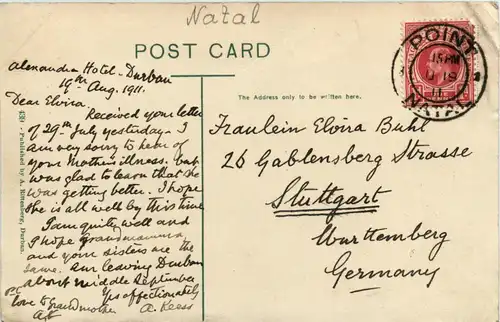 Natal
POST CARD
Alexandra Hotel - Durban
19th Aug. 1911.
Dear Elvira
Received your letter
of 29th July yesterday. I
am very sorry to hear of
your Mothers illness. but
was glad to learn that she
was getting better. I hope
she is all well by this time
I am quite well and
I hope Grandmamma
and your sisters are the
same. Am leaving Durban
about middle September
Yrs affectionately
A. Reess
love to Grandmother
Published by A. Rittenberg, Durban.
The Address only to be written here.
POINT
15 PM
11
NATAL
Fraulein Elvira Buhl
26 Gablensberg Strasse
Stuttgart
Wurttemberg
Germany